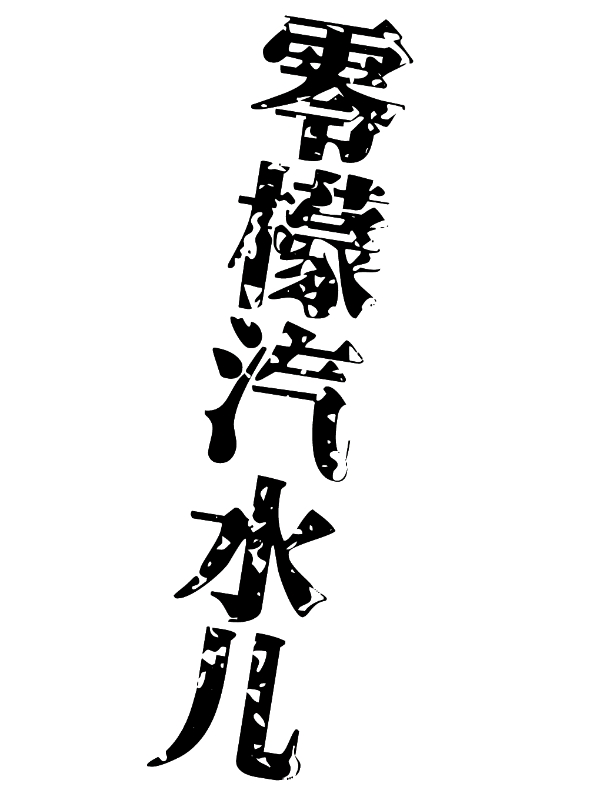 零檬汽水儿